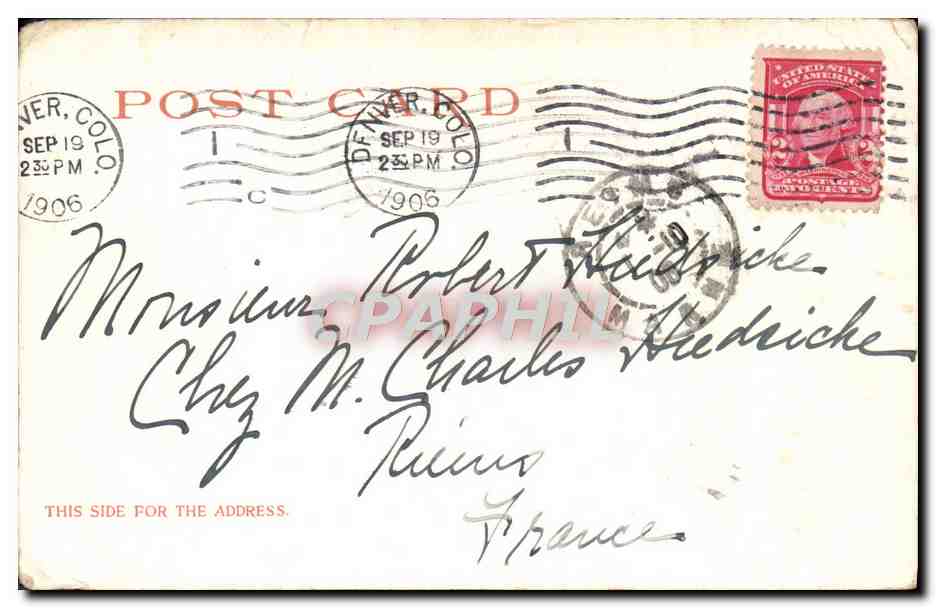 POST CARD
NVER, COLO.
SEP 19
2 30 PM
1906
DENVER, COLO.
SEP 19
2 30 PM
1906
I
I
C
UNITED STATES
OF AMERICA
2 2
POSTAGE
TWO CENTS
Monsieur Robert Hiedsicke
CPAPHIL
Chez M. Charles Hiedsicke
Rieims
France
THIS SIDE FOR THE ADDRESS.